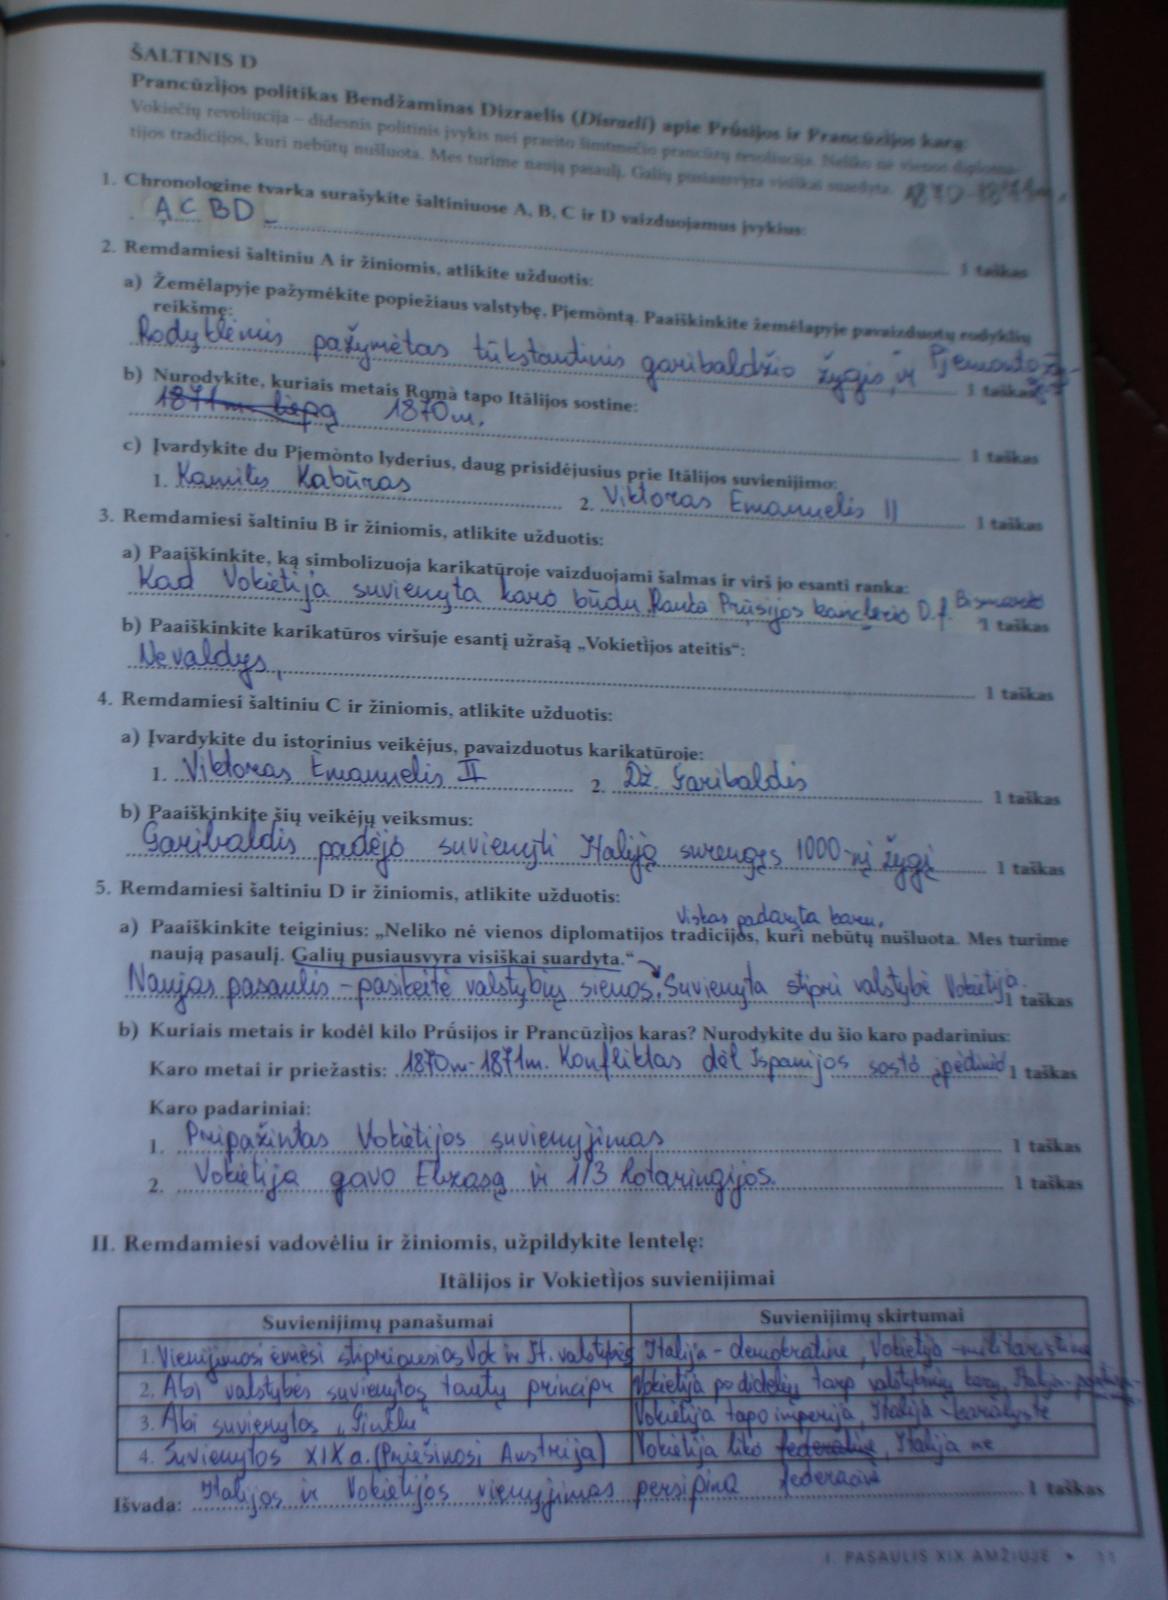 ŠALTINIS D
Prancūzijos politikas Bendžaminas Dizraelis (Disraeli) apie Prūsijos ir Prancūzijos karą:
Vokiečių revoliucija – didesnis politinis įvykis nei praeito šimtmečio prancūzų revoliucija. Neliko nė vienos diploma-
tijos tradicijos, kuri nebūtų nušluota. Mes turime naują pasaulį. Galių pusiausvyra visiškai suardyta. 1870-1871m.
1. Chronologine tvarka surašykite šaltiniuose A, B, C ir D vaizduojamus įvykius:
A C B D 1 taškas
2. Remdamiesi šaltiniu A ir žiniomis, atlikite užduotis:
a) Žemėlapyje pažymėkite popiežiaus valstybę, Pjemontą. Paaiškinkite žemėlapyje pavaizduotų rodyklių
reikšmę:
Rodyklėmis pažymėtas tūkstantinis garibaldžio žygis, ir Pjemonto žy-
gis 1 taškas
b) Nurodykite, kuriais metais Romà tapo Itãlijos sostine:
1871m. liepą 1870m. 1 taškas
c) Įvardykite du Pjemònto lyderius, daug prisidėjusius prie Itãlijos suvienijimo:
1. Kamilis Kabūras 2. Viktoras Emanuelis II 1 taškas
3. Remdamiesi šaltiniu B ir žiniomis, atlikite užduotis:
a) Paaiškinkite, ką simbolizuoja karikatūroje vaizduojami šalmas ir virš jo esanti ranka:
Kad Vokietija suvienyta karo būdu. Ranka Prūsijos kanclerio O.f. Bismarko 1 taškas
b) Paaiškinkite karikatūros viršuje esantį užrašą „Vokietìjos ateitis“:
Nevaldys, 1 taškas
4. Remdamiesi šaltiniu C ir žiniomis, atlikite užduotis:
a) Įvardykite du istorinius veikėjus, pavaizduotus karikatūroje:
1. Viktoras Emanuelis II 2. Dž. Garibaldis 1 taškas
b) Paaiškinkite šių veikėjų veiksmus:
Garibaldis padėjo suvienyti Italiją surengęs 1000-nį žygį 1 taškas
5. Remdamiesi šaltiniu D ir žiniomis, atlikite užduotis:
Viskas padaryta karu.
a) Paaiškinkite teiginius: „Neliko nė vienos diplomatijos tradicijos, kuri nebūtų nušluota. Mes turime
naują pasaulį. Galių pusiausvyra visiškai suardyta.“
Naujas pasaulis – pasikeitė valstybių sienos. Suvienyta stipri valstybė Vokietija. 1 taškas
b) Kuriais metais ir kodėl kilo Prū́sijos ir Prancūzìjos karas? Nurodykite du šio karo padarinius:
Karo metai ir priežastis: 1870m-1871m. Konfliktas dėl Ispanijos sosto įpėdinio 1 taškas
Karo padariniai:
1. Pripažintas Vokietijos suvienyjimas 1 taškas
2. Vokietija gavo Elzasą ir 1/3 Lotaringijos. 1 taškas
II. Remdamiesi vadovėliu ir žiniomis, užpildykite lentelę:
Itãlijos ir Vokietìjos suvienijimai
Suvienijimų panašumai Suvienijimų skirtumai
1. Vienijimosi ėmėsi stipriausios Vok ir It. valstybės Italija – demokratinė, Vokietija – militaristinė
2. Abi valstybės suvienytos tautų principu Vokietija po didelių tarp valstybinių karų, Italija –
3. Abi suvienytos „Ginklu“ Vokietija tapo imperija, Italija – karalyste
4. Suvienytos XIX a. (Priešinosi Austrija) Vokietija liko federalinė, Italija ne
federacinė
Išvada: Italijos ir Vokietijos vienyjimas persipina 1 taškas
I. PASAULIS XIX AMŽIUJE • 11